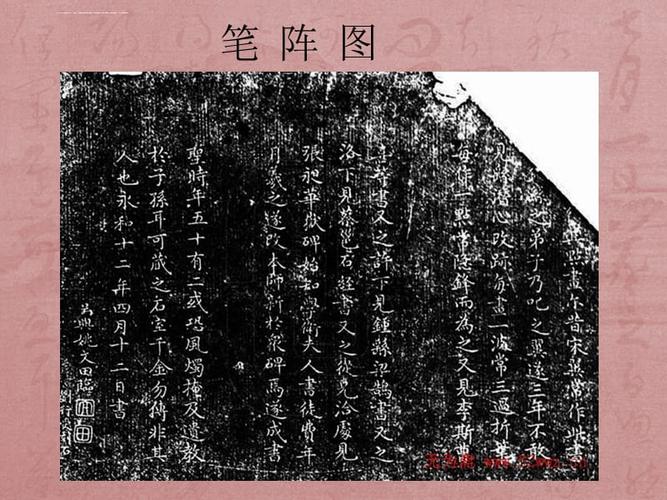 笔阵图
點畫尔昔宋翼常作此
之弟子乃叱之翼遂三年不敢
見潛心改跡畫一波常三過折
每作一點常隱鋒而為之又見李斯
喜等書又之許下見鍾繇梁鵠書又之
洛下見蔡邕石經書又之從兄洽處見
張昶華嶽碑始知學衛夫人書徒費年
月羲之遂改本師新於衆碑焉遂成書
聖時年五十有二或恐風燭掩及遺教
於子孫耳可藏之石室千金勿傳非其
人也永和十二年四月十二日書
吴興姚文田臨